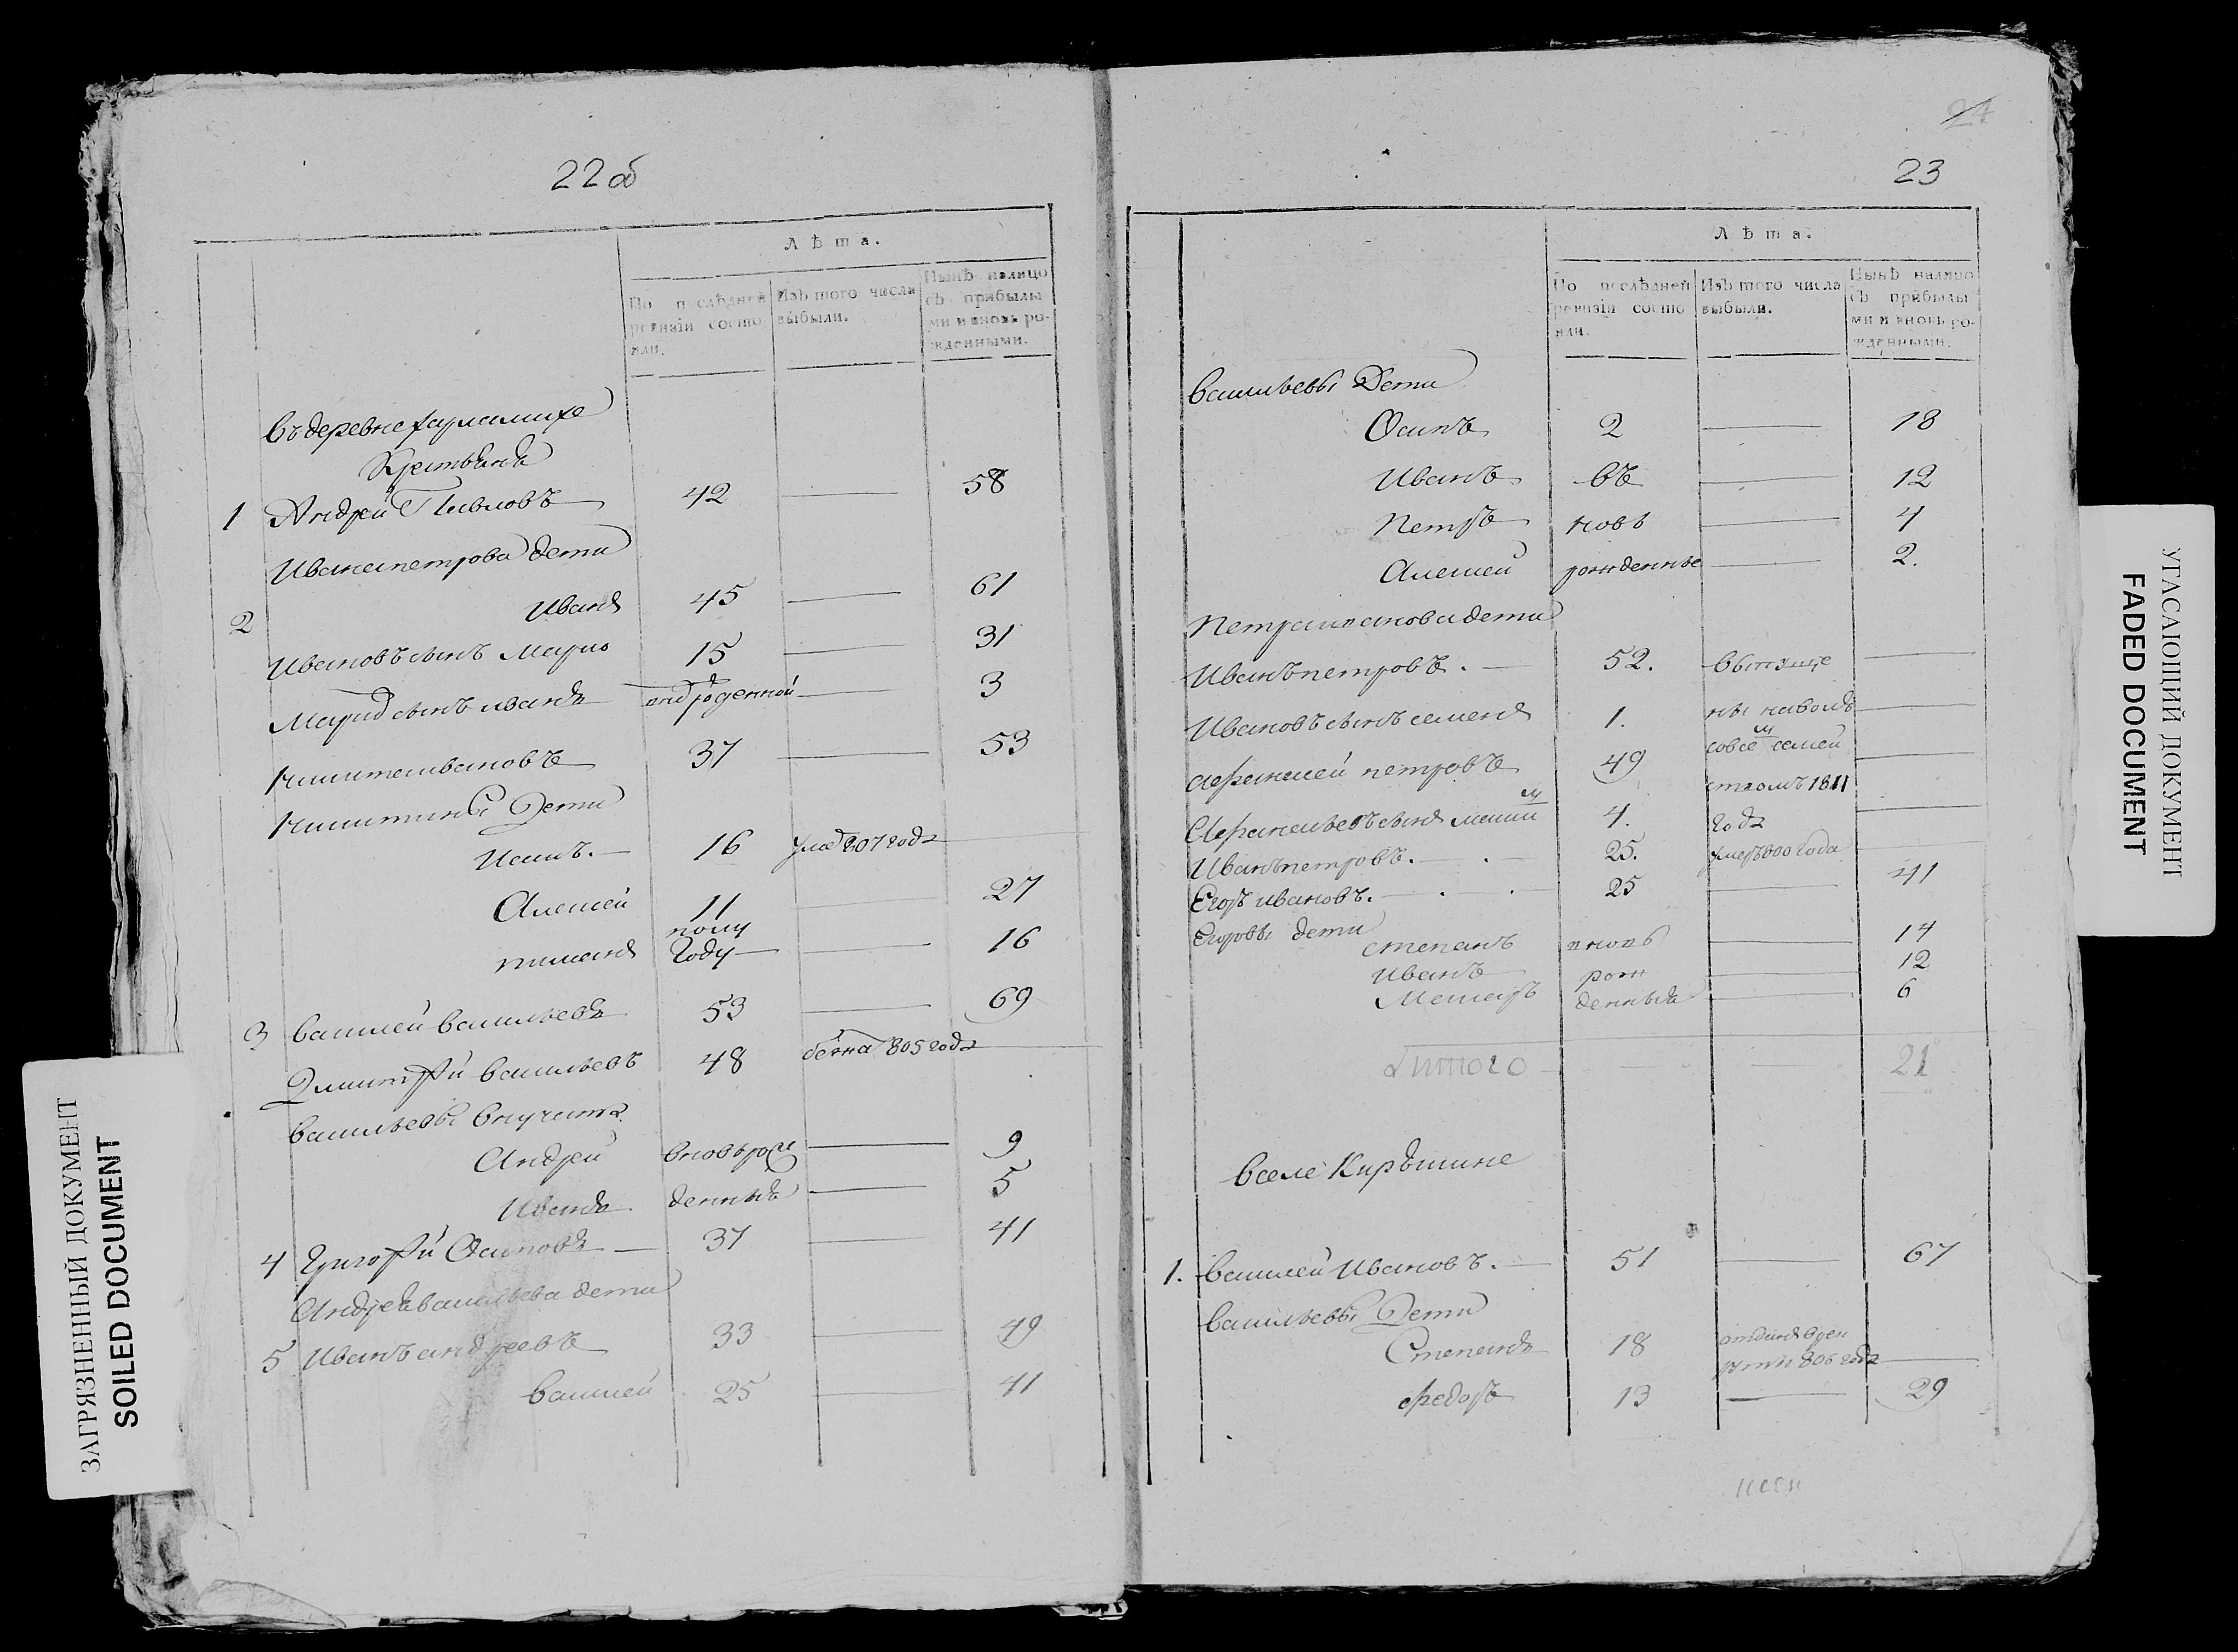 22 об
Лѣта.
По послѣдней ревизіи состояли.
Изъ того числа выбыли.
Нынѣ налицо съ прибылыми и вновь рожденными.
Въ деревне
Крестьянъ
1 Андрей Павловъ 42 58
Ивана петрова дети
2 Иванъ 45 61
Ивановъ сынъ Марко 15 31
сынъ иванъ 3
Никита ивановъ 37 53
Никитины Дети
Исакъ. 16 807 года
Алексей 11 27
полу
году 16
3 василей васильевъ 53 69
Дмитрий васильевъ 48 805 года
васильевы внучата
Андрей вновь рож 9
Иванъ денныя 5
4 Григорий Осиповъ 37 41
Андрея васильева дети
5 Иванъ андреевъ 33 49
василей 25 41
24
23
Лѣта.
По послѣдней ревизіи состояли.
Изъ того числа выбыли.
Нынѣ налицо съ прибылыми и вновь рожденными.
васильевы Дети
Осипъ 2 18
Иванъ въ 12
Петръ новъ 4
Алексей рожденные 2.
Петра иванова дети
Иванъ петровъ. 52.
Ивановъ сынъ семенъ 1.
петровъ 49 совсе м семей
сынъ 4. ствомъ 1811 года
Иванъ петровъ. 25. умеръ 800 года
Егоръ ивановъ. 25 41
Егоровы дети
степанъ вновь 14
Иванъ рож 12
денныя 6
Итого 21
В селе Киръшине
1. василей Ивановъ. 51 67
васильевы Дети
Степанъ 18 отданъ врек
руты 806 года
Федоръ 13 29
ЗАГРЯЗНЕННЫЙ ДОКУМЕНТ
SOILED DOCUMENT
УГАСАЮЩИЙ ДОКУМЕНТ
FADED DOCUMENT